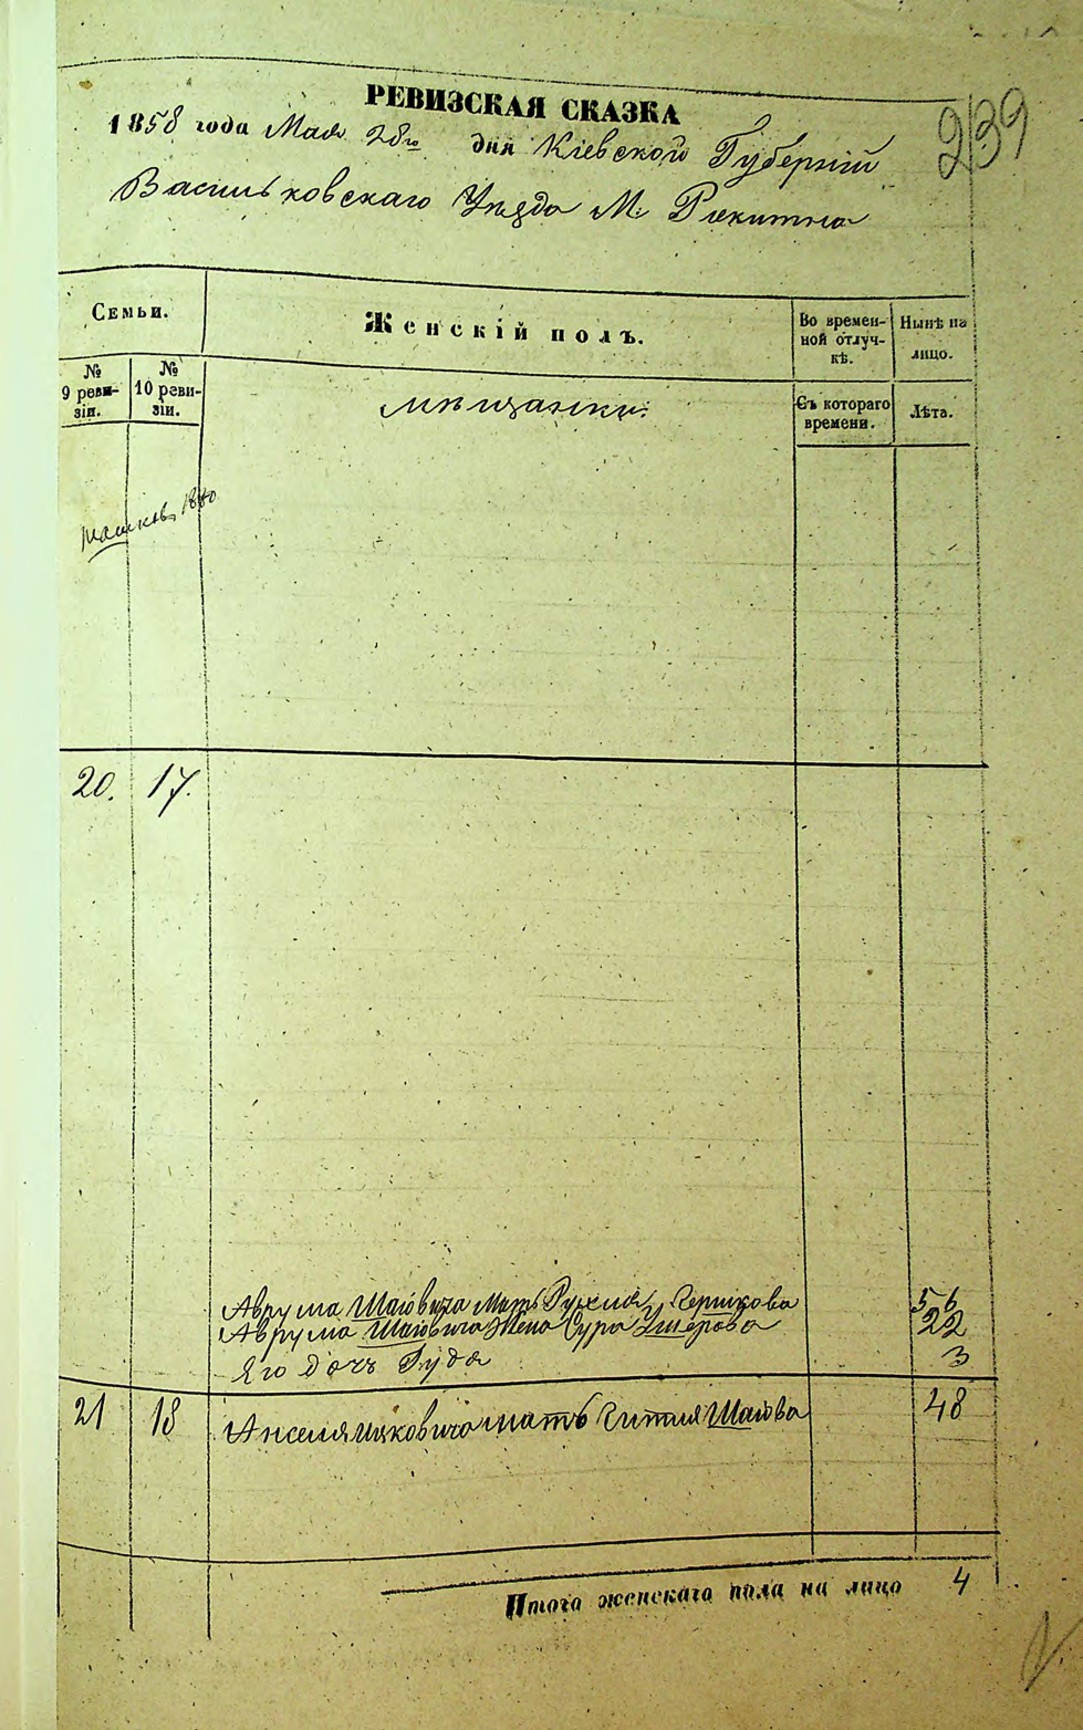 239
РЕВИЗСКАЯ СКАЗКА
1858 года Мая 28го дня Кіевской Губерніи
Васильковскаго Уѣзда М. Рокитна
Семьи.
Женскій полъ.
Во времен-
ной отлуч-
кѣ.
Нынѣ на
лицо.
№
9 реви-
зіи.
№
10 реви-
зіи.
мѣщанки:
Съ котораго
времени.
Лѣта.
20. 17.
Аврума Шаіовича Мать Рухля Гершкова 56
Аврума Шаіовича Жена Сура 22
Его дочь 3
21 18 мать Гитля Шаіова 48
Итого женскаго пола на лицо 4